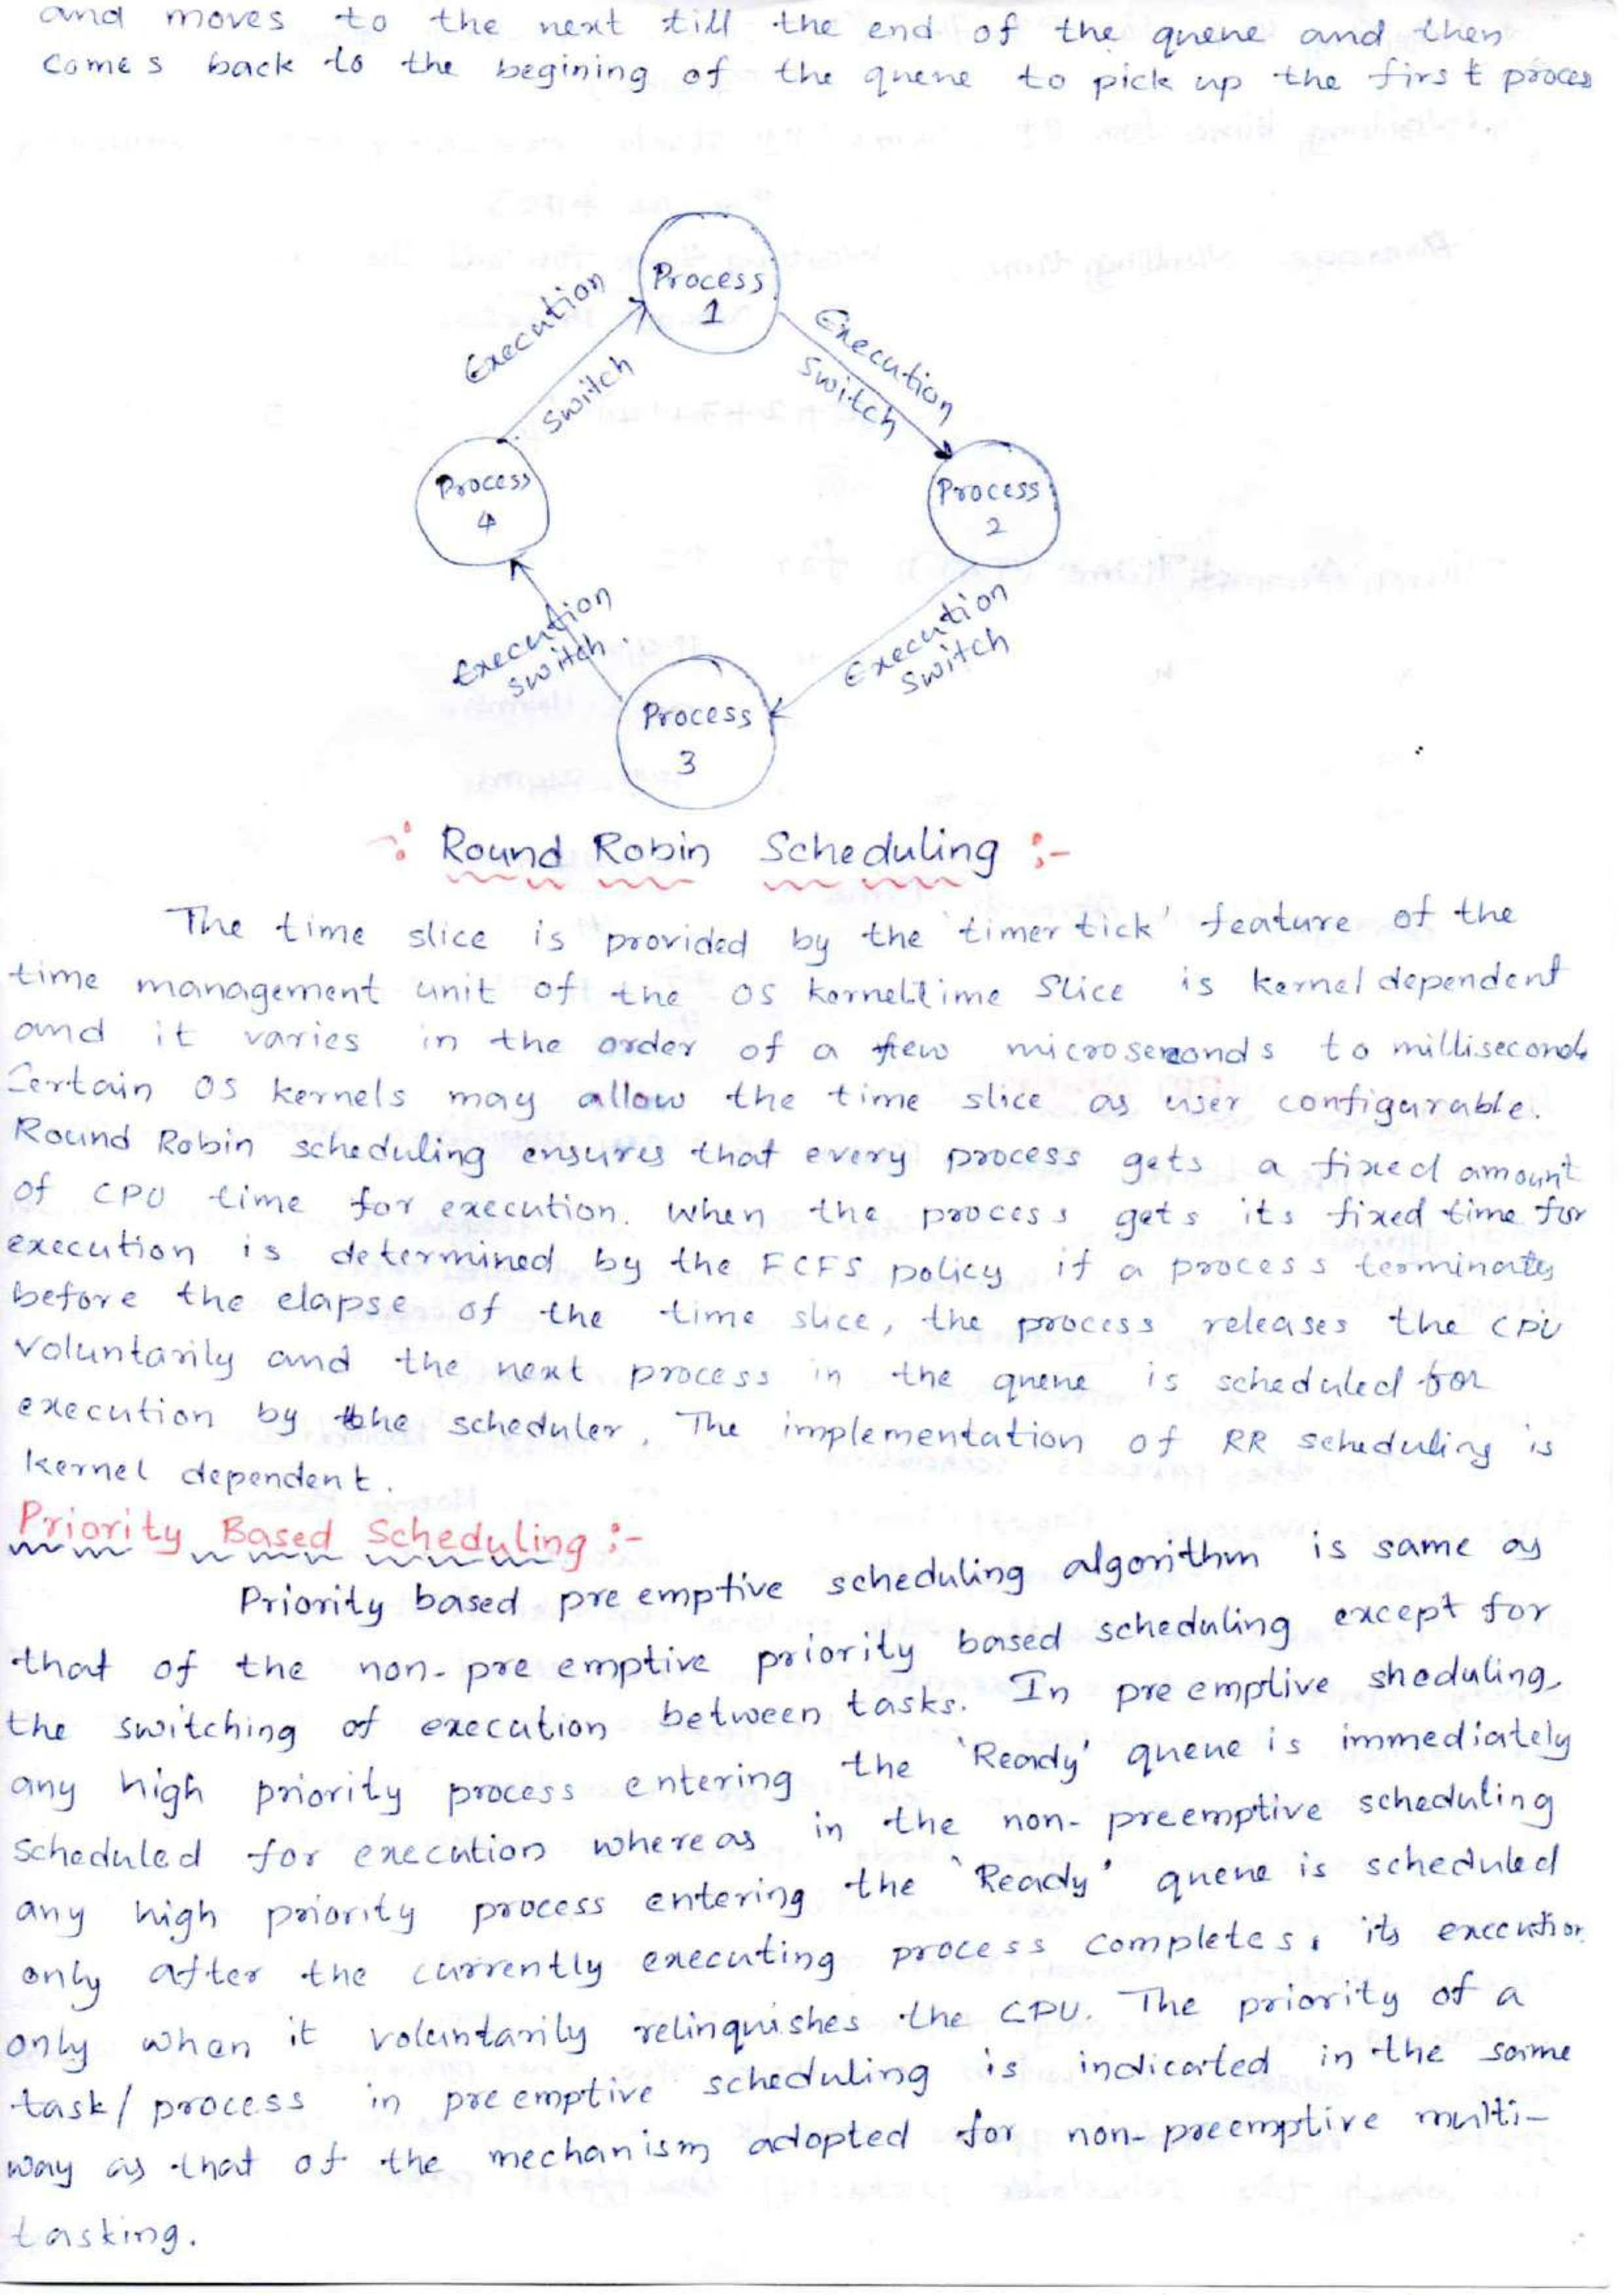 and moves to the next till the end of the queue and then
comes back to the begining of the queue to pick up the first proces
Process
1
Execution
Switch
Execution
Switch
Process
4
Process
2
Execution
switch
Execution
switch
Process
3
-: Round Robin Scheduling :-
The time slice is provided by the 'timer tick' feature of the
time management unit of the OS kernel.time Slice is kernel dependent
and it varies in the order of a few microseconds to milliseconds
Certain OS kernels may allow the time slice as user configurable.
Round Robin scheduling ensures that every process gets a fixed amount
of CPU time for execution. When the process gets its fixed time for
execution is determined by the FCFS policy if a process terminates
before the elapse of the time slice, the process releases the CPU
voluntarily and the next process in the queue is scheduled for
execution by the scheduler. The implementation of RR scheduling is
kernel dependent.
Priority Based Scheduling :-
Priority based pre emptive scheduling algorithm is same as
that of the non- pre emptive priority based scheduling except for
the switching of execution between tasks. In pre emptive sheduling,
any high priority process entering the 'Ready' queue is immediately
scheduled for execution whereas in the non- preemptive scheduling
any high priority process entering the 'Ready' queue is scheduled
only after the currently executing process completes, its execution
only when it voluntarily relinquishes the CPU. The priority of a
task/ process in pre emptive scheduling is indicated in the same
way as that of the mechanism adopted for non-preemptive multi-
tasking.